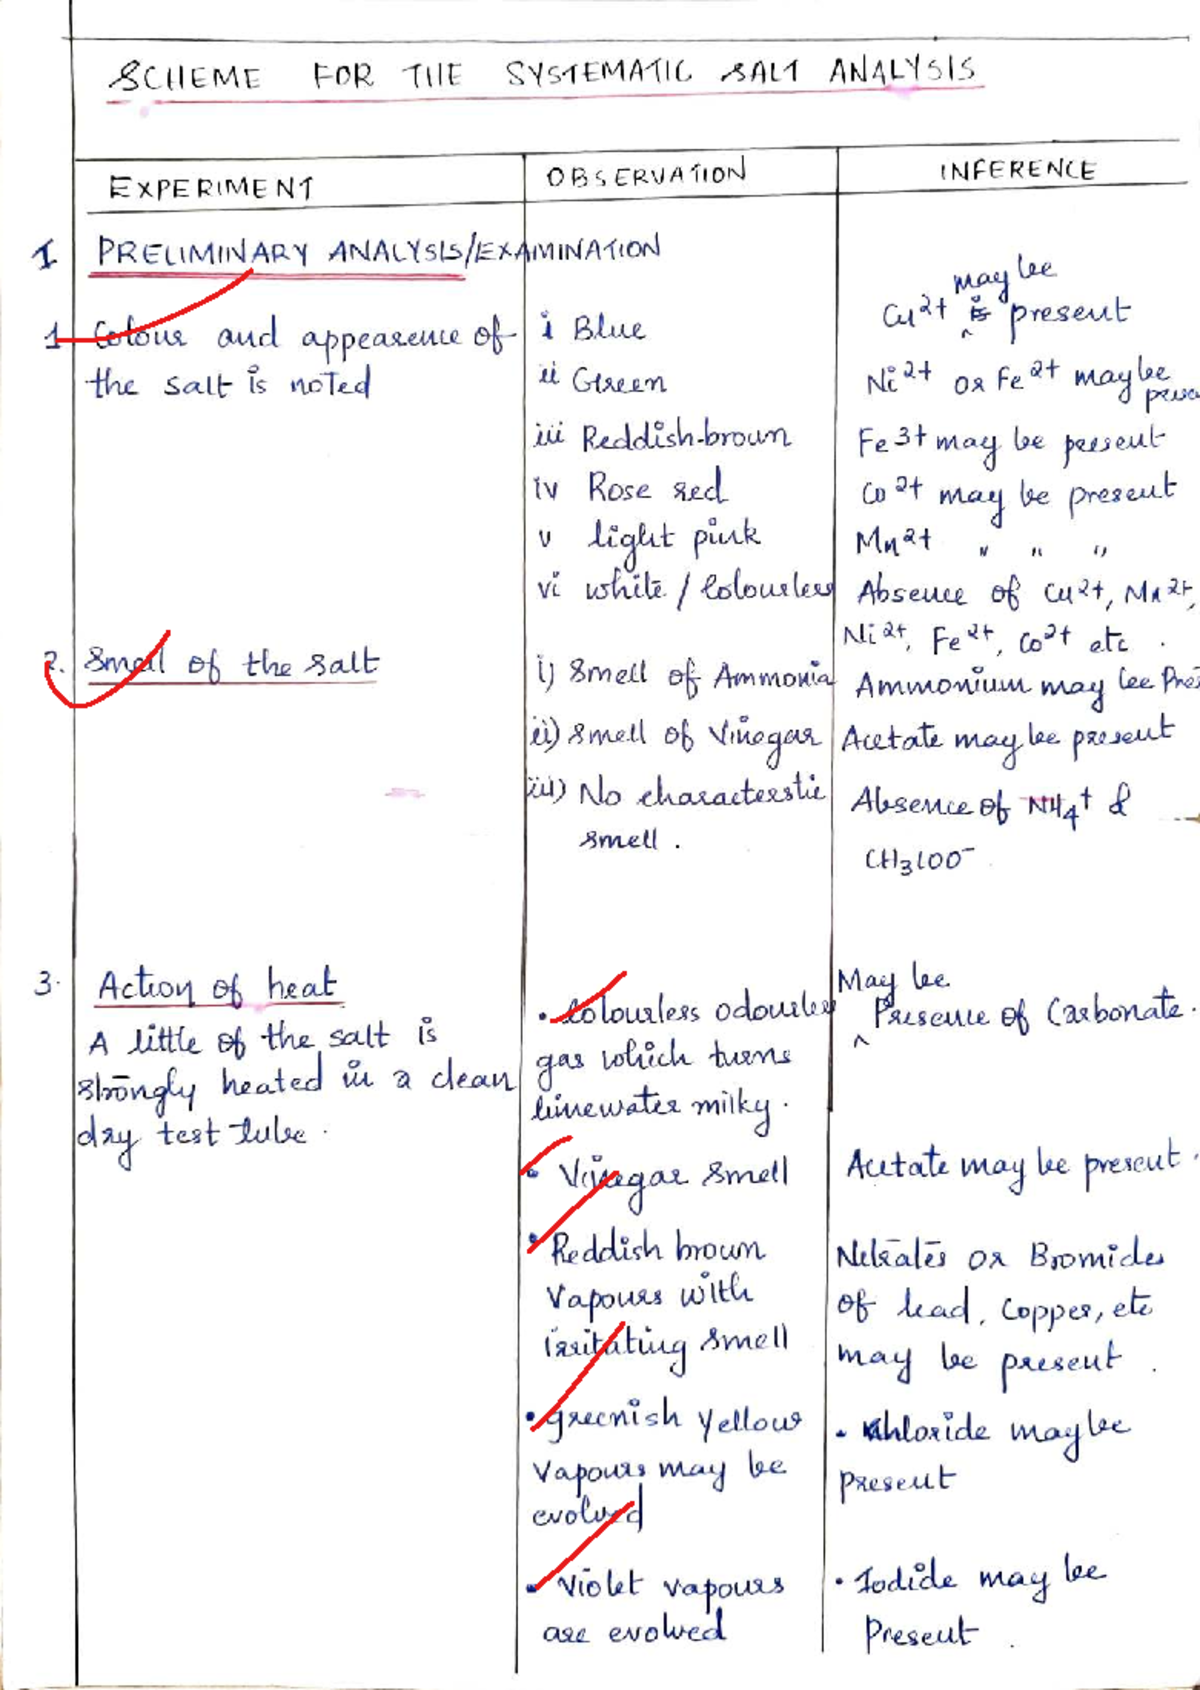 SCHEME FOR THE SYSTEMATIC SALT ANALYSIS
EXPERIMENT OBSERVATION INFERENCE
I PRELIMINARY ANALYSIS/EXAMINATION
1 Colour and appearence of the salt is noted
i Blue
may be
Cu2+ is ^ present
ii Green
Ni2+ or Fe2+ may be
iii Reddish-brown
Fe3+ may be present
iv Rose red
Co2+ may be present
v light pink
Mn2+ " " "
vi white / Colourless
Absence of Cu2+, Mn2+,
Ni2+, Fe2+, Co2+ etc.
2. Smell of the salt
i) Smell of Ammonia
Ammonium may be Pres
ii) Smell of Vinegar
Acetate may be present
iii) No characterstic
smell.
Absence of NH4+ &
CH3COO-
3. Action of heat
A little of the salt is
strongly heated in a clean
dry test tube.
• Colourless odourless
gas which turns
limewater milky.
May be
^ Presence of Carbonate.
• Vinegar smell
Acetate may be present.
• Reddish brown
Vapours with
irritating smell
Nitrates or Bromides
of lead, Copper, etc
may be present.
• greenish yellow
vapours may be
evolved
• Chloride may be
present
• Violet vapours
are evolved
• Iodide may be
Present.